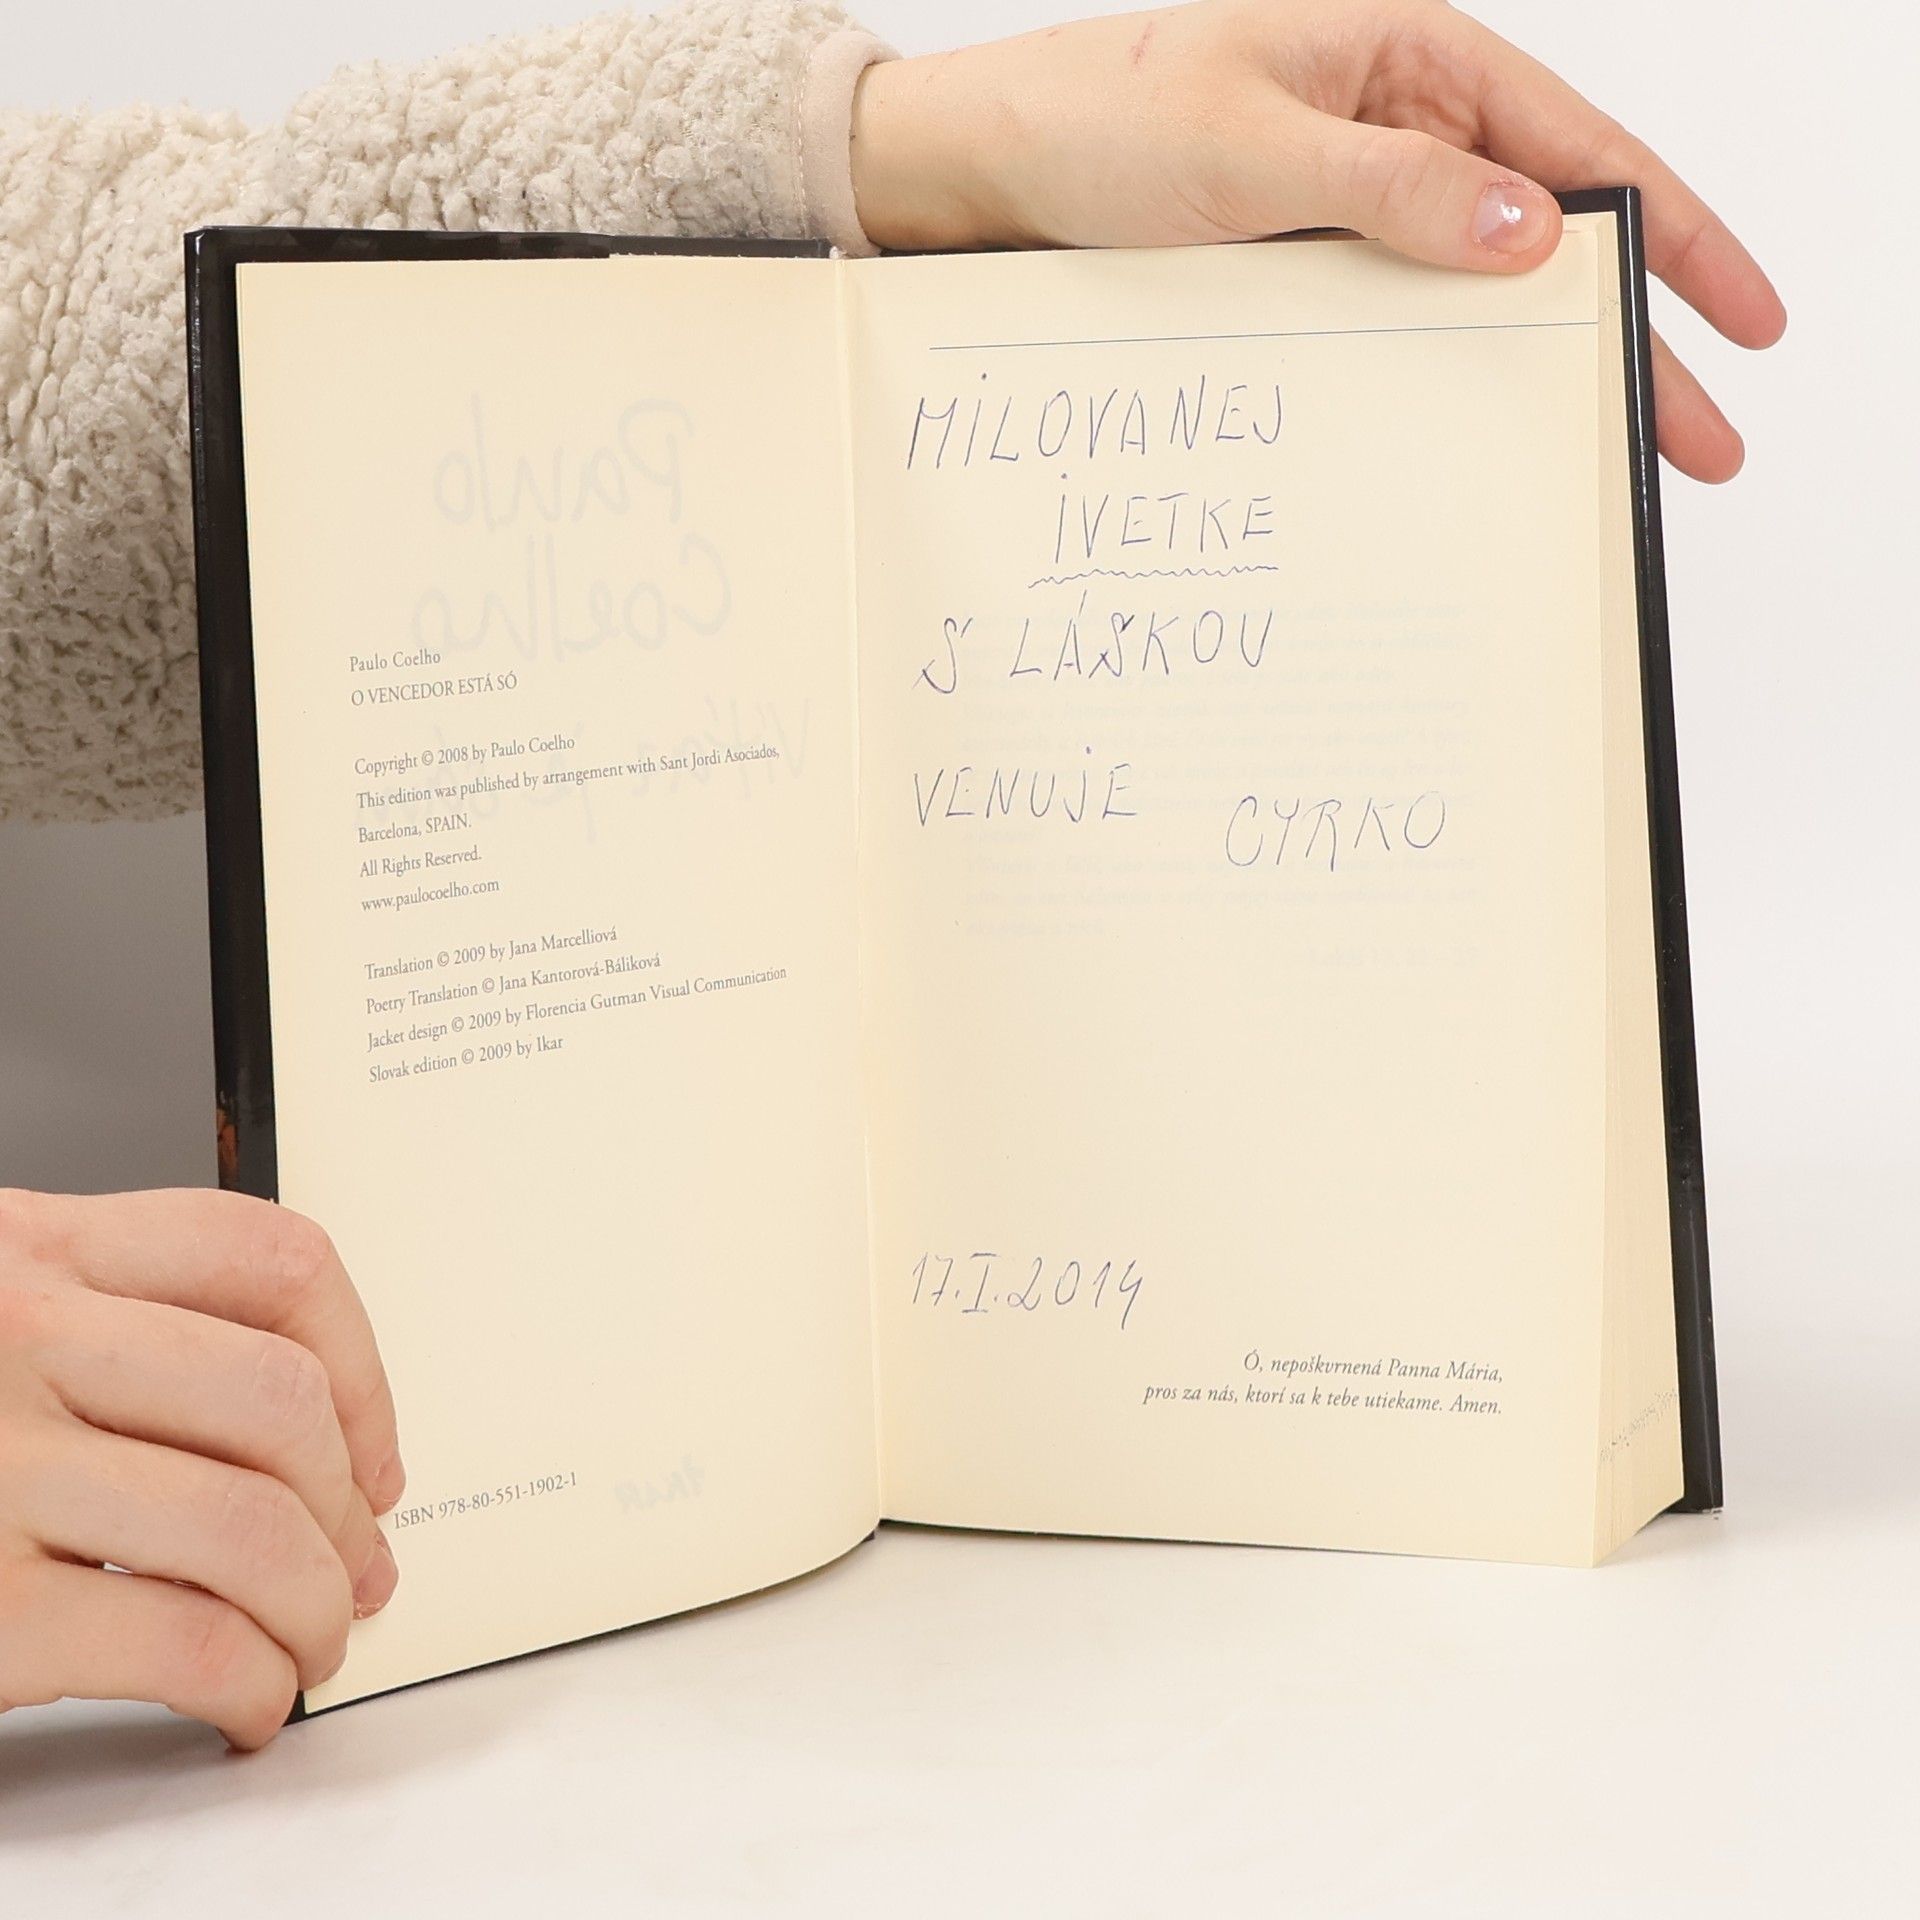 Paulo Coelho
O VENCEDOR ESTÁ SÓ
Copyright © 2008 by Paulo Coelho
This edition was published by arrangement with Sant Jordi Asociados,
Barcelona, SPAIN.
All Rights Reserved.
www.paulocoelho.com
Translation © 2009 by Jana Marcelliová
Poetry Translation © Jana Kantorová-Báliková
Jacket design © 2009 by Florencia Gutman Visual Communication
Slovak edition © 2009 by Ikar
ISBN 978-80-551-1902-1
MILOVANEJ
IVETKE
S LÁSKOU
VENUJE CYRKO
17.I.2014
Ó, nepoškvrnená Panna Mária,
pros za nás, ktorí sa k tebe utiekame. Amen.